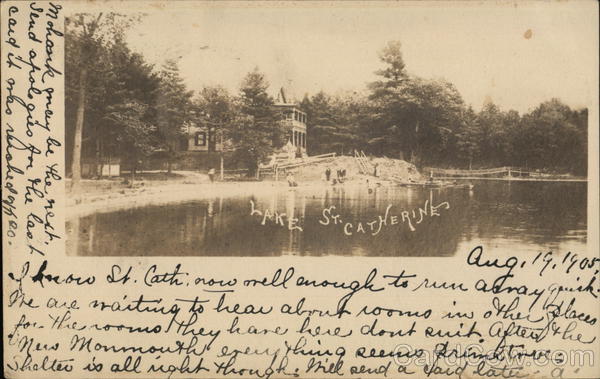 Mohonk may be the next.
Send apologies for the last
card it was rushed off so.
LAKE ST. CATHERINE.
Aug. 19, 1905,
I know St. Cath. now well enough to run away quick.
We are waiting to hear about rooms in other places
for the rooms they have here dont suit. After the
"New Monmouth" everything seems primitive.
Shelter is all right though. Will send a card later. a.
CardCow.com